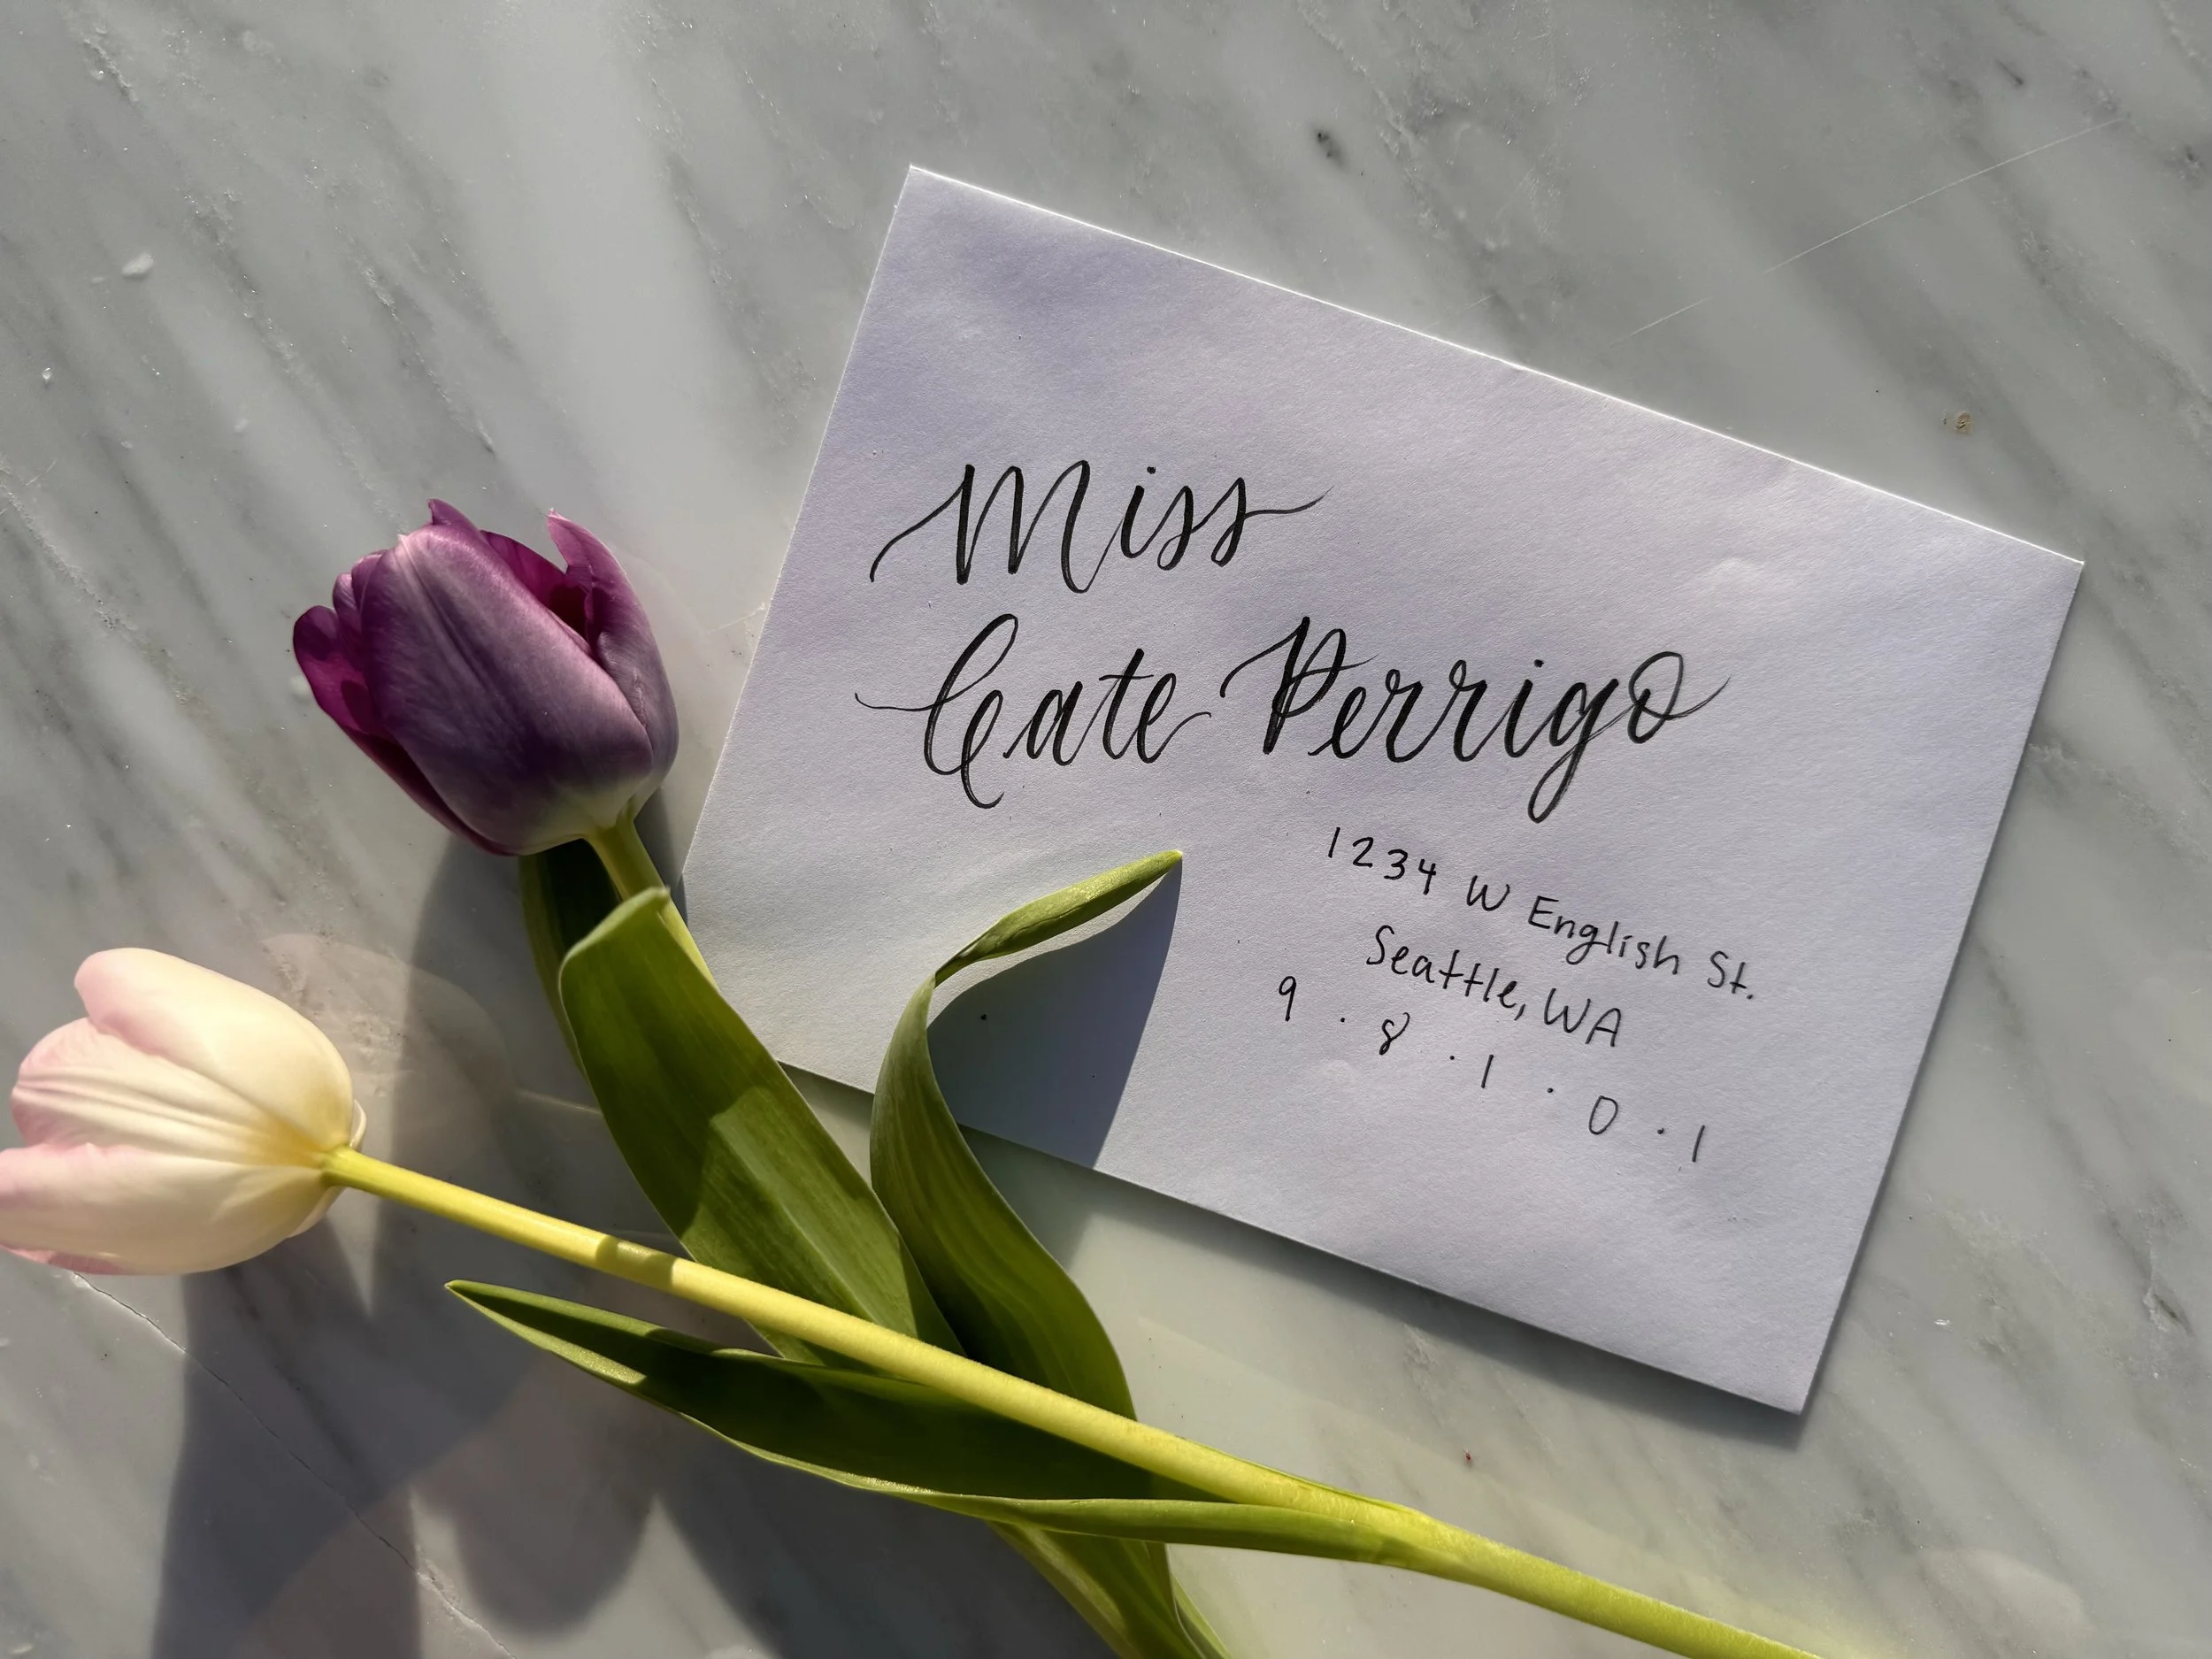 Miss
Cate Perrigo
1234 W English St.
Seattle, WA
9 . 8 . 1 . 0 . 1